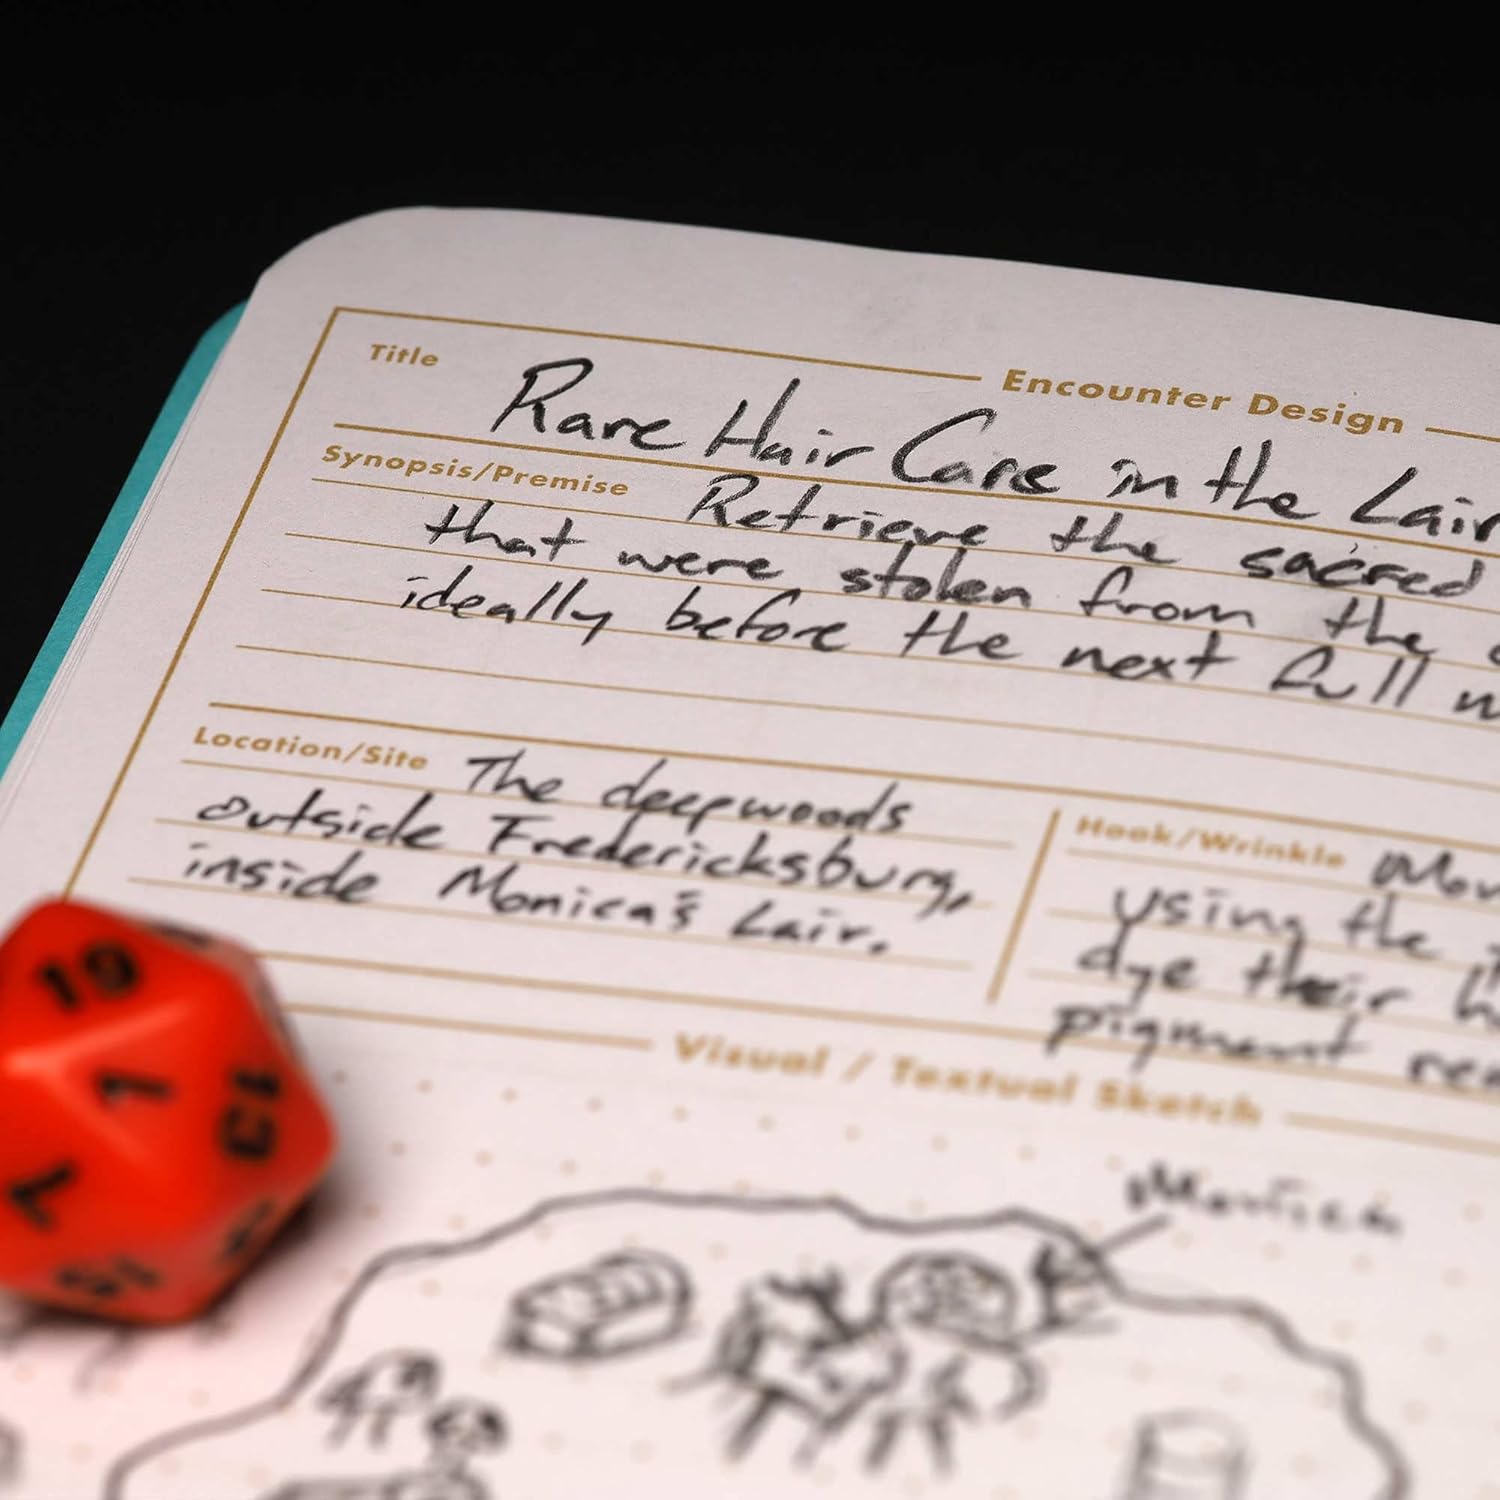 Encounter Design
Title Rare Hair Care in the Lair
Synopsis/Premise Retrieve the sacred
that were stolen from the
ideally before the next full
Location/Site The deepwoods
outside Fredericksburg,
inside Monica's Lair.
Hook/Wrinkle
using the
dye their
pigment
Visual / Textual Sketch
Monica
19
1
7